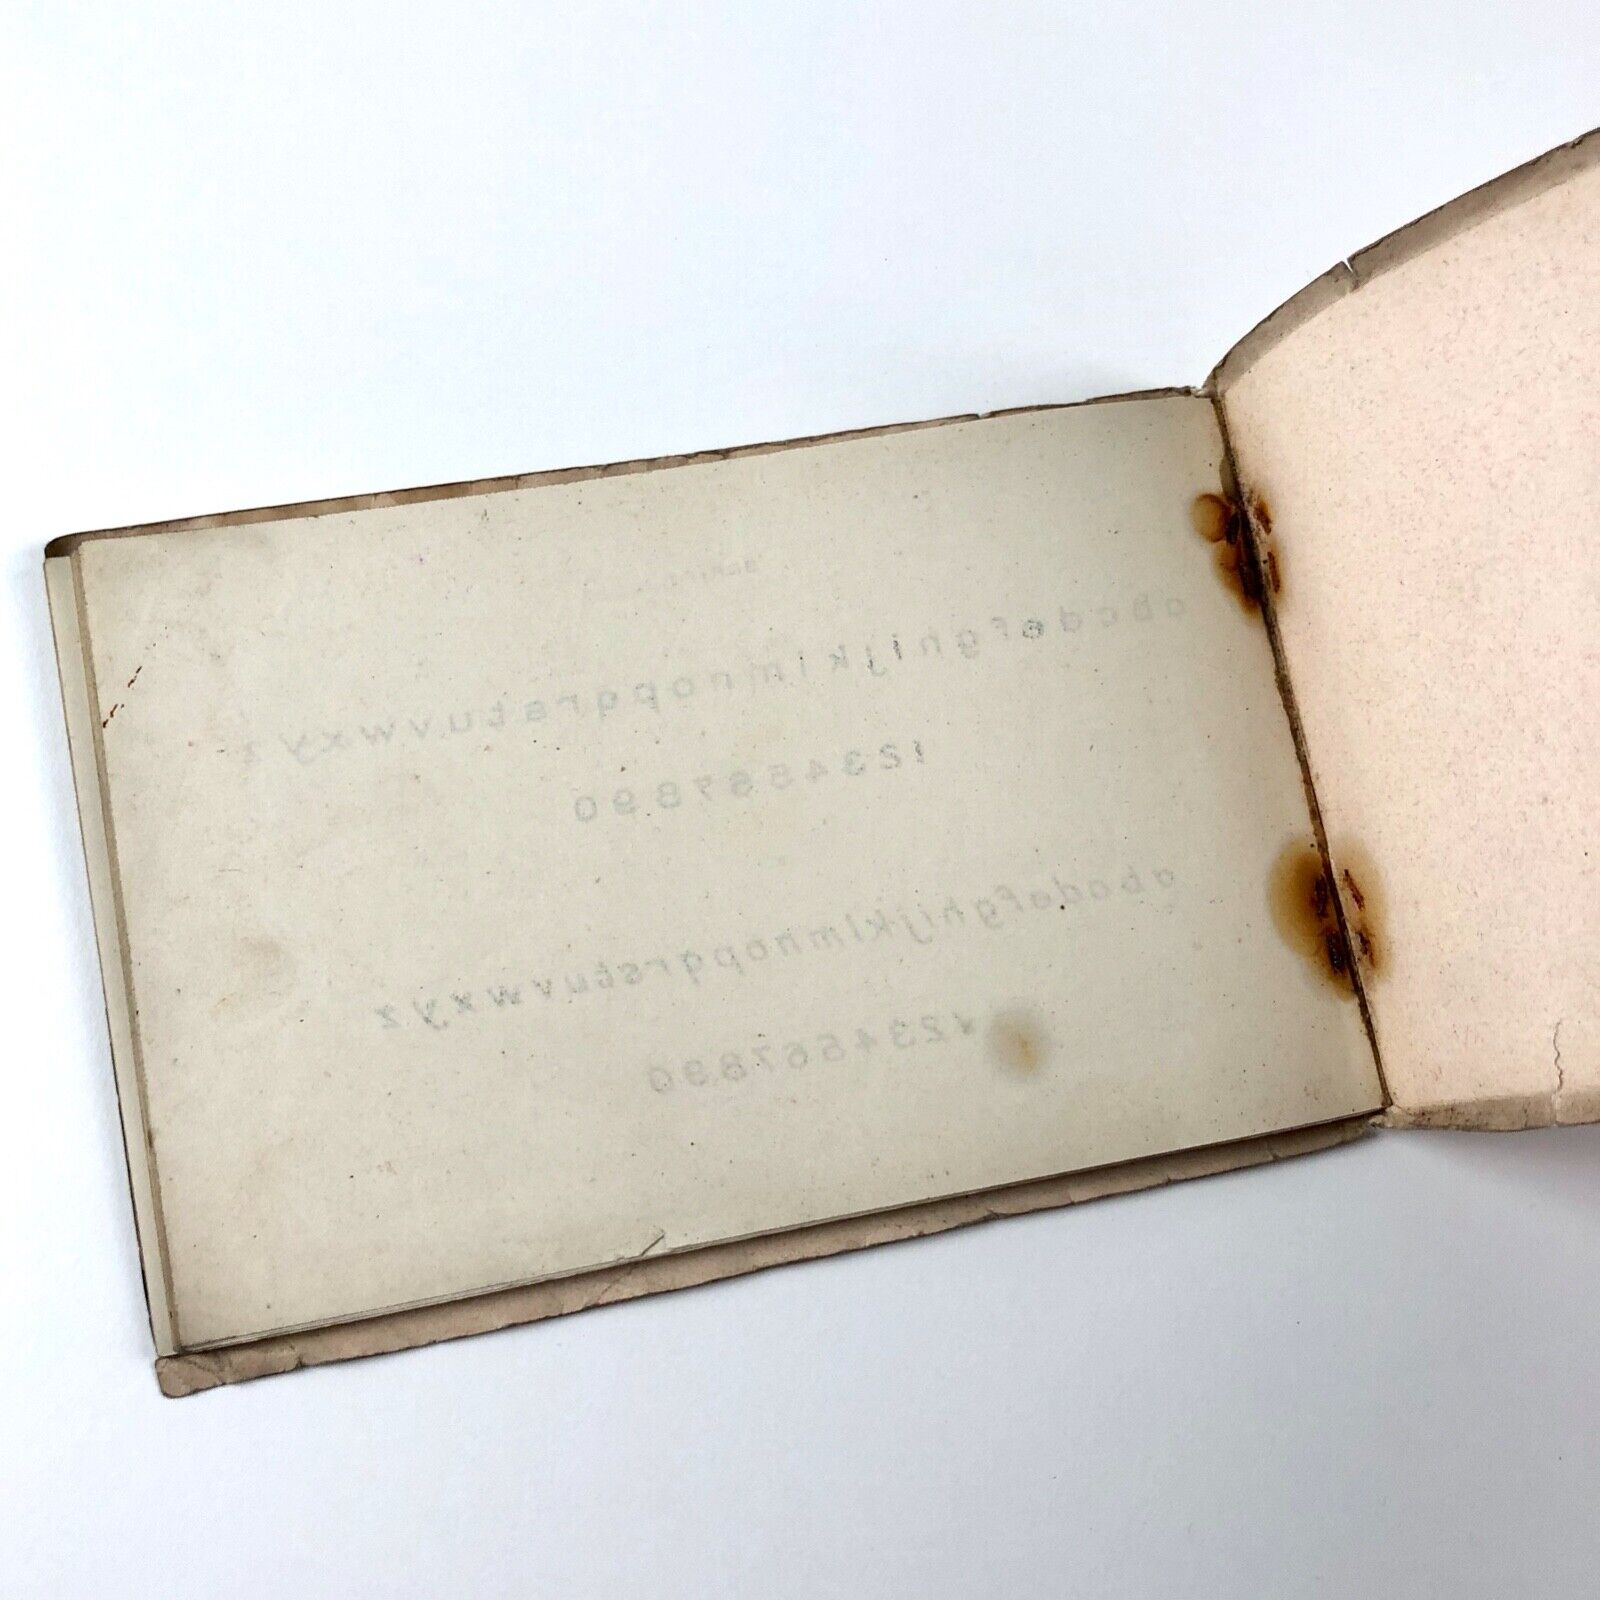 abcdefghijklmnopqrstuvwxyz
1234567890
abcdefghijklmnopqrstuvwxyz
1234567890